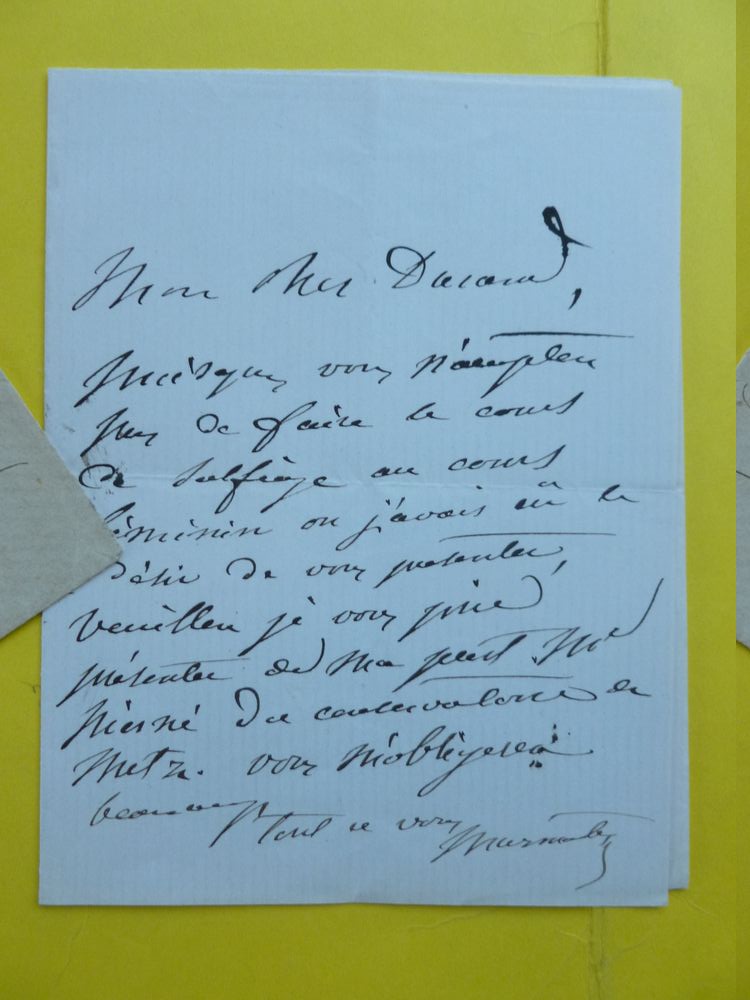 Mon cher Durand,
puisque vous n'acceptez
pas de faire le cours
de solfège au cours
féminin ou j'avais eû le
désir de vous présenter,
veuillez je vous prie
présenter de ma part Mr
Pierné du conservatoire de
Metz. vous m'obligerez
beaucoup
tout a vous
Marmontel